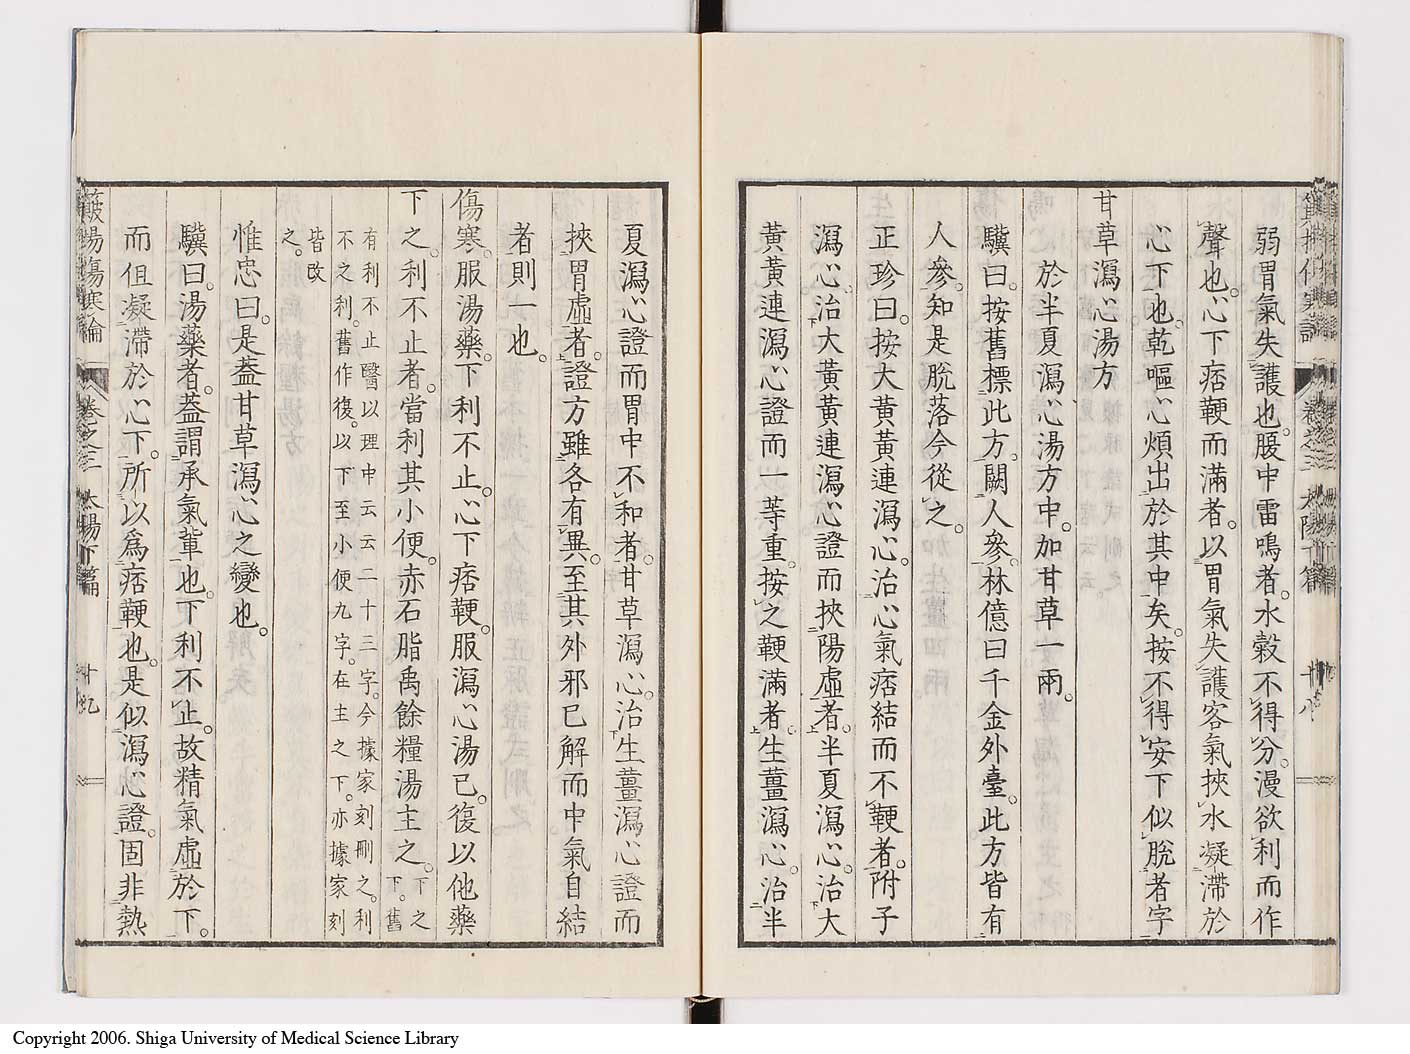 弱胃氣失護也腹中雷鳴者水穀不得分漫欲利而作
聲也心下痞鞕而滿者以胃氣失護客氣挾水凝滯於
心下也乾嘔心煩出於其中矣按不得安下似脫者字
甘草瀉心湯方
於半夏瀉心湯方中加甘草一兩
驥曰按舊標此方闕人參林億曰千金外臺此方皆有
人參知是脫落今從之
正珍曰按大黃黃連瀉心治心氣痞結而不鞕者附子
瀉心治大黃黃連瀉心證而挾陽虛者半夏瀉心治大
黃黃連瀉心證而一等重按之鞕滿者生薑瀉心治半
夏瀉心證而胃中不和者甘草瀉心治生薑瀉心證而
挾胃虛者證方雖各有異至其外邪已解而中氣自結
者則一也
傷寒服湯藥下利不止心下痞鞕服瀉心湯已復以他藥
下之利不止者當利其小便赤石脂禹餘糧湯主之下之
下舊
有利不止醫以理中云云二十三字今據家刻刪之利
不之利舊作復以下至小便九字在主之下亦據家刻
皆改
之
惟忠曰是蓋甘草瀉心之變也
驥曰湯藥者蓋謂承氣輩也下利不止故精氣虛於下
而但凝滯於心下所以爲痞鞕也是似瀉心證固非熱
傷寒論 卷之三 太陽下篇 十九
卷之三 太陽下篇 十八
Copyright 2006. Shiga University of Medical Science Library